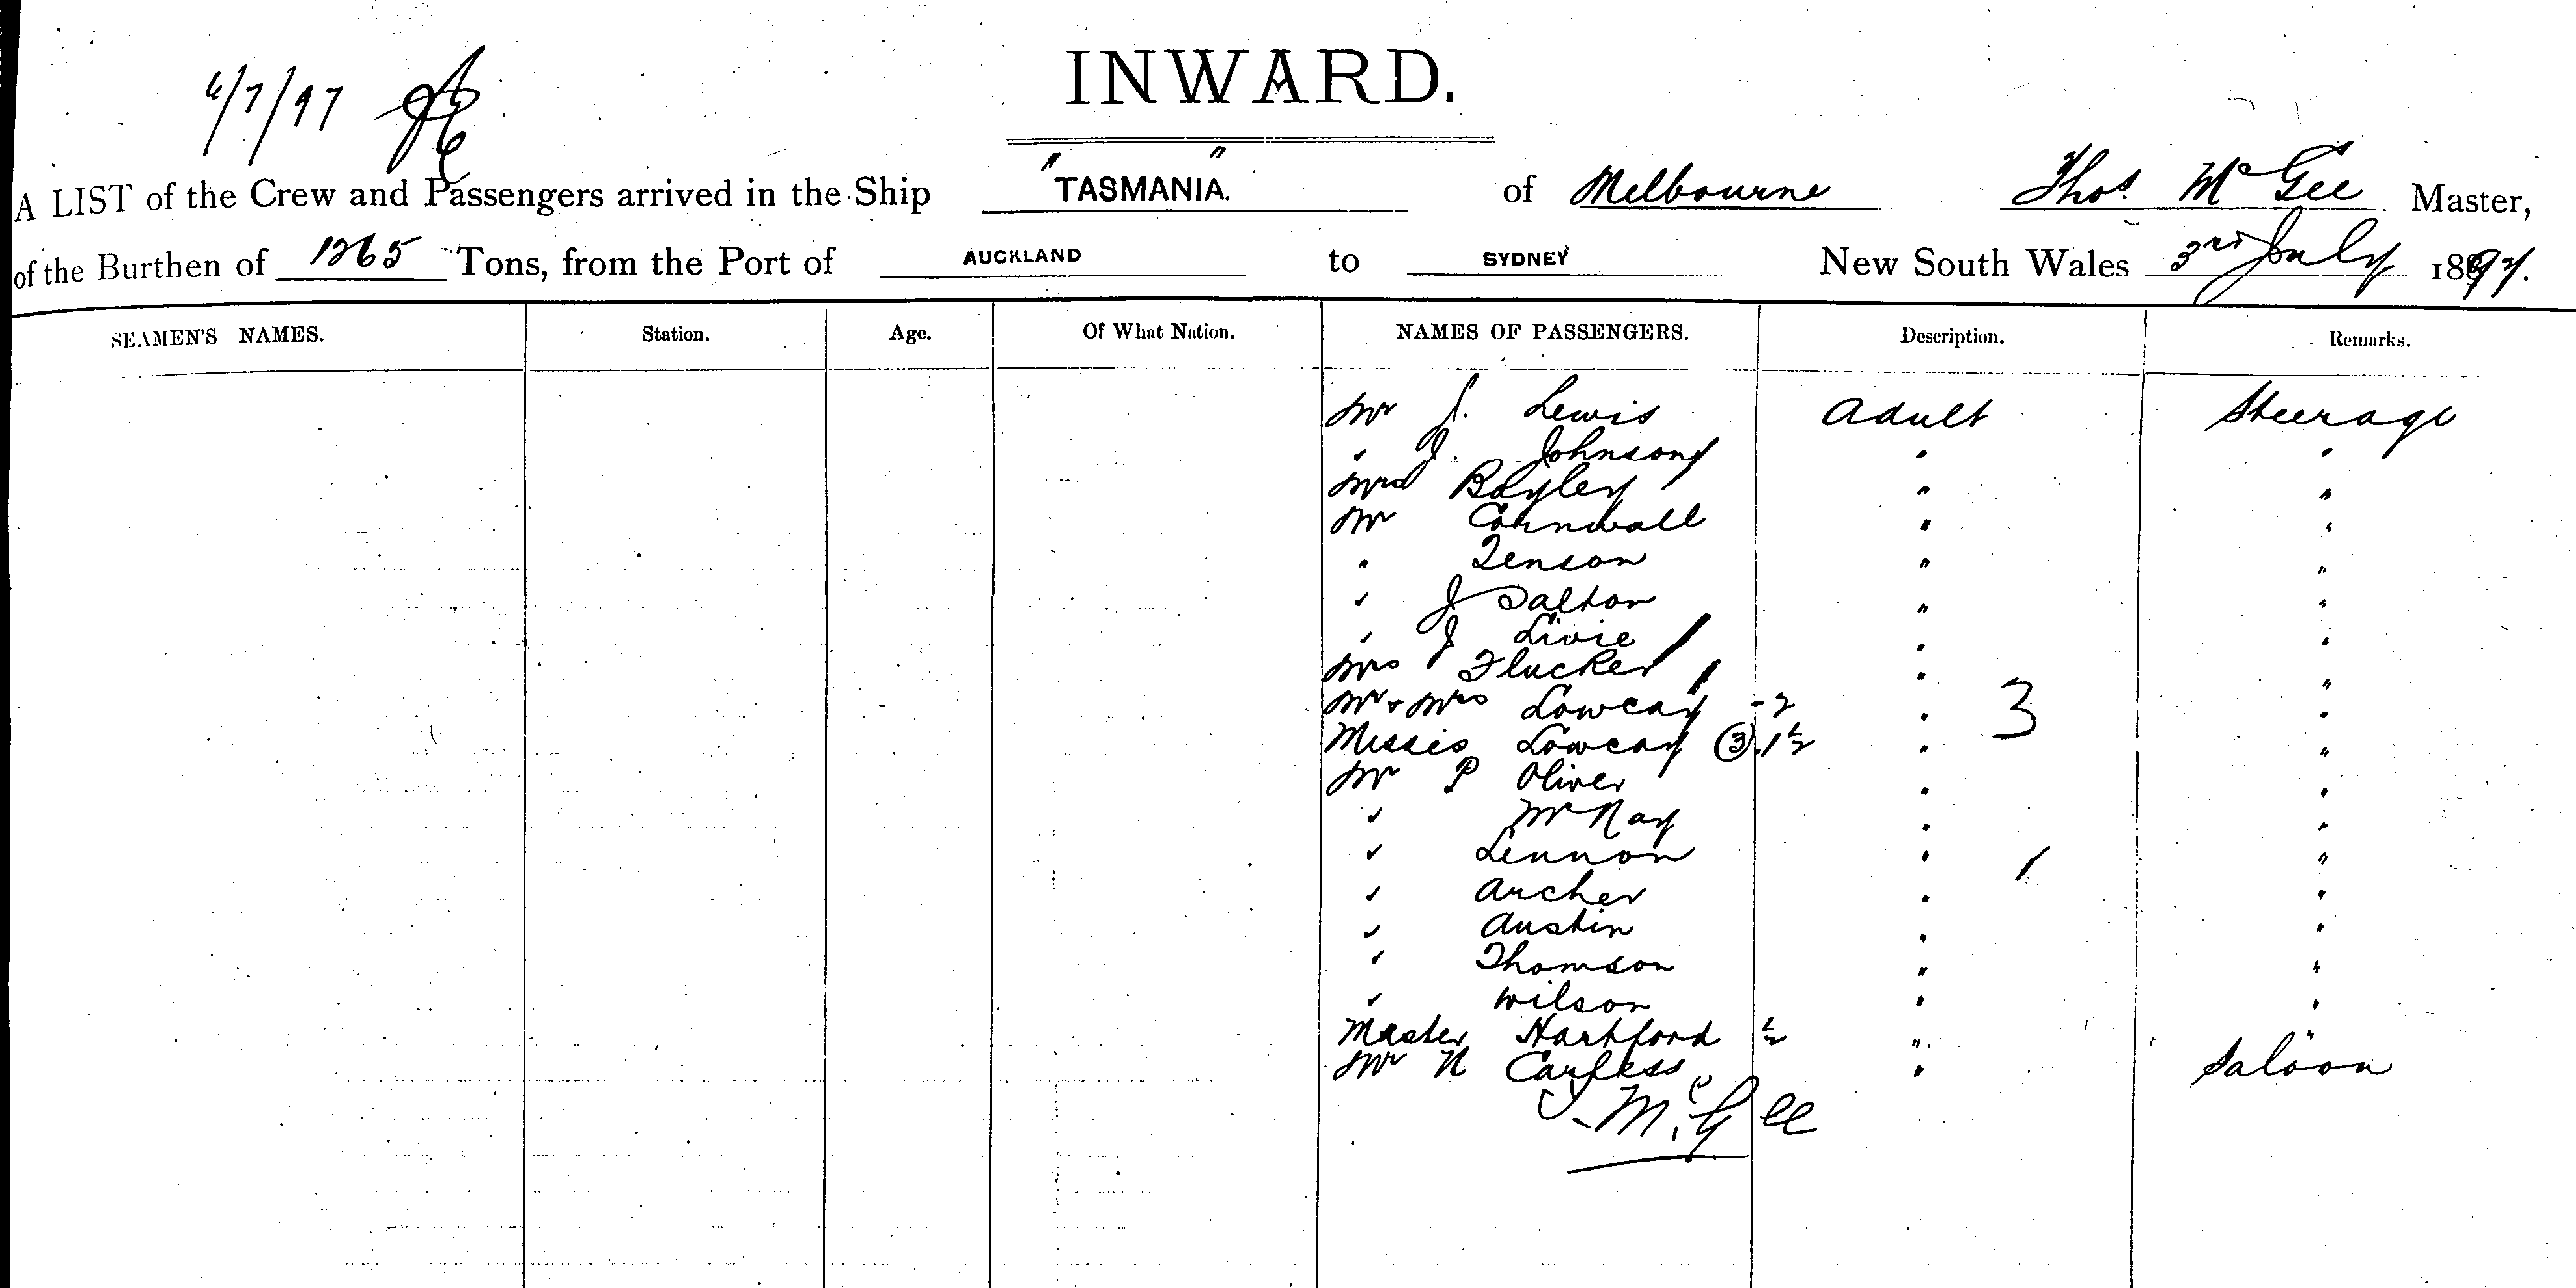 6/7/97
INWARD.
A LIST of the Crew and Passengers arrived in the Ship "TASMANIA." of Melbourne Thos. McGee Master,
of the Burthen of 1265 Tons, from the Port of AUCKLAND to SYDNEY New South Wales 3rd July 1897.
SEAMEN'S NAMES. Station. Age. Of What Nation. NAMES OF PASSENGERS. Description. Remarks.
Mr J. Lewis Adult Steerage
" J. Johnson " "
Mrs Bayley " "
Mr Cornwall " "
" Jenson " "
" J Dalton " "
" J Livie " "
Mrs Flucker " "
Mr & Mrs Lowcay - 2 " 3 "
Misses Lowcay (3) 1½ " "
Mr P Oliver " "
" McNay " "
" Lennon " "
" Archer " "
" Austin " "
" Thomson " "
" Wilson " "
Master Hartford ½ " "
Mr N Carfess " Saloon
McGee